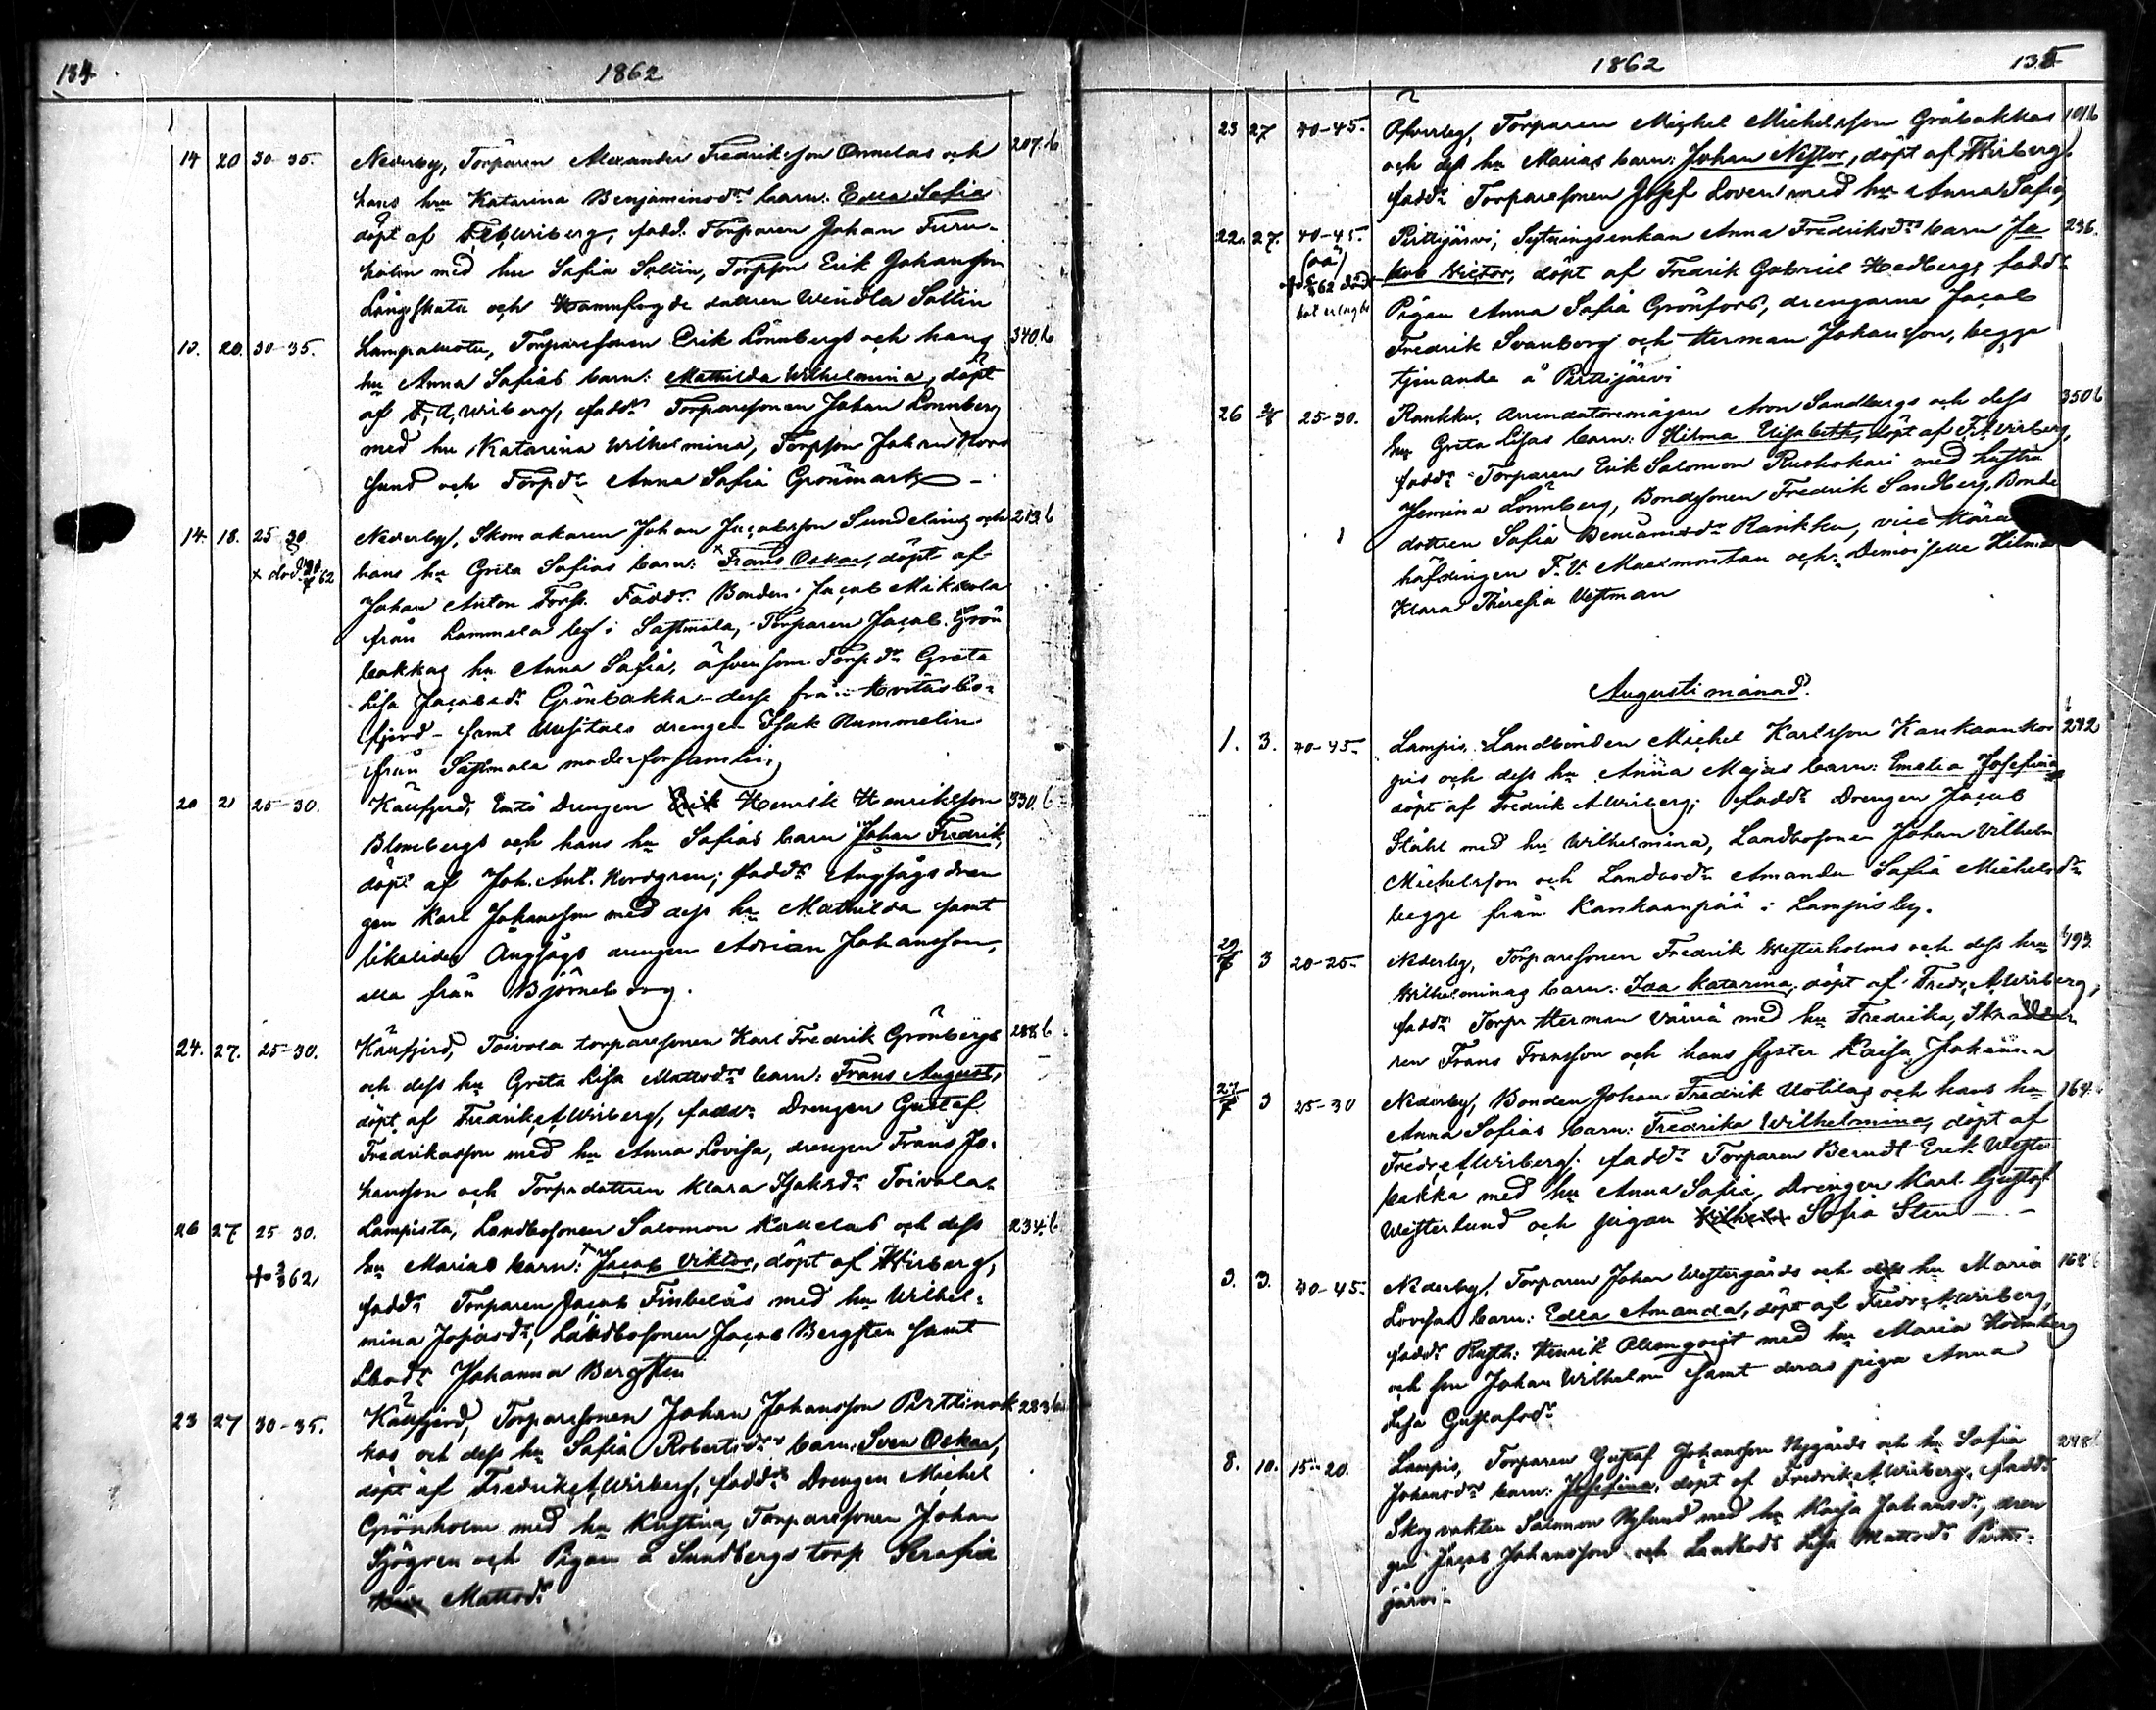 134.
1862
14 20 30-35. Nederby, Torparen Alexander Fredriksson Onnelas och 207.b
hans hu Katarina Benjaminsdrs barn: Edla Sofia
döpt af F.A.Wiberg, fadd. Torparen Johan Furu-
holm med hu Sofia Sallin, Torpson Erik Johansson
Långskata och Hamnfogde dottren Wendla Sallin
13. 20. 30-35. Lampaluoto, Torparesonen Erik Lönnbergs och hans 340.b
hu Anna Sofias barn: Mathilda Wilhelmina, döpt
af F.A.Wiberg, faddr Torparesonen Johan Lönnberg
med hu Katarina Wilhelmina, Torpson Johan Nord
sund och Torpdr Anna Sofia Grönmark -
14. 18. 25-30 Nederby, Skomakaren Johan Jacobsson Sundelins och 213.b
x död 62 hans hu Greta Sofias barn: x Frans Oskar, döpt af
Johan Anton Forss. Faddr Bonden Jacob Mikkola
från Lammela by i Sastmola, Torparen Jacob Grön
bakkas hu Anna Sofia, äfvensom Torpdr Greta
Lisa Jacobsdr Grönbakka - desse från Hvittisbo-
fjerd - samt drengen Isak Nummelin
från Sastmola moderförsamling
20 21 25-30. Kånfjerd, Drengen Erik Henrik Henriksson 330.b
Blombergs och hans hu Sofias barn Johan Fredrik,
döpt af Joh. Ant. Nordgren; faddr Ångsågs dren
gen Karl Johansson med dess hu Mathilda samt
likaledes Ångsågs drengen Adrian Johansson,
alla från Björneborg.
24. 27. 25-30. Toivola torparesonen Karl Fredrik Grönbergs 288.b
och dess hu Greta Lisa Mattsdrs barn: Frans August,
döpt af Fredrik A.Wiberg, faddr Drengen Gustaf
Fredriksson med hu Anna Lovisa, drengen Frans Jo-
hansson och Torpdottren Klara Isaksdr Toivola.
26 27 25-30. Lampista, Landbosonen Salomon och dess 234.b
+ 62, hu Marias barn: Jacob Viktor, döpt af Wiberg,
faddr Torparen Jacob Finbelås med hu Wilhel-
mina Josefsdr, Landbosonen Jacob Bergsten samt
Lbodr Johanna Bergsten
23 27 30-35. Torparesonen Johan Johansson Perttinok 283b
kas och dess hu Sofia Robertsdrs barn: Sven Oskar,
döpt af Fredrik A.Wiberg, faddr Drengen Michel
Grönholm med hu Kristina, Torparesonen Johan
Sjögren och Pigan å Sundbergs torp Serafia
Mattsdr
1862
135
23 27 40-45. Torparen Michel Michelsson Gråbakkas 101b
och dess hu Marias barn: Johan Nestor, döpt af Wiberg,
faddr Torparesonen Josef Loven med hu Anna Sofia,
22. 27. 40-45. Pirttijärvi, Sytningsenkan Anna Fredriksdrs barn Ja 236.
(oä) kob Victor, döpt af Fredrik Gabriel Hedberg, faddr
Pigan Anna Sofia Grönfors, drengarne Jacob
Fredrik Svanborg och Herman Johansson, begge
tjenande å Pirttijärvi
26 25-30. Rankku, Arrendatoremågen Aron Sandbergs och dess 350b
hu Greta Lisas barn: Hilma Elisabeth, döpt af F.A.Wiberg,
faddr Torparen Erik Salomon Ruohokari med hustru
Jemina Lönnberg, Bondesonen Fredrik Sandberg, Bonde
dottren Sofia Benjamsdr Rankku, vice Hära
höfdingen F. V. Maexmontan och Demoiselle Hilma
Klara Theresia Westman
Augusti månad.
1. 3. 40-45. Lampis, Landbonden Michel Karlsson Kankaankor 242
pis och dess hu Anna Majas barn: Emelia Josefina
döpt af Fredrik A.Wiberg; faddr Drengen Jacob
Ståhl med hu Wilhelmina, Landbosonen Johan Vilhelm
Michelsson och Landbodr Amanda Sofia Michelsdr
begge från Kankaanpää i Lampis by.
29/7 3 20-25. Nederby, Torparesonen Fredrik Westerholms och dess hu 193.
Wilhelminas barn: Ida Katarina, döpt af Fredr. A.Wiberg,
faddr Torpr Herman Vainiä med hu Fredrika,
ren Frans Fransson och hans syster Kaisa Johanna
27/7 3 25-30 Nederby, Bonden Johan Fredrik Uotilas och hans hu 164.
Anna Sofias barn: Fredrika Wilhelmina, döpt af
Fredr A.Wiberg; faddr Torparen Berndt Erik Wester
bakka med hu Anna Sofia, Drengen Karl Gustaf
Westerlund och pigan Sofia Sten -
3. 3. 40-45. Nederby, Torparen Johan Westergårds och dess hu Maria 168
Lovisas barn: Edla Amanda, döpt af Fredr A.Wiberg,
faddr Rusth: Henrik Almqvist med hu Maria Holmberg
och son Johan Wilhelm samt deras piga Anna
Lisa Gustafsdr
8. 10. 15-20. Lampis, Torparen Gustaf Johansson Nygårds och hu Sofia 248
Johansdrs barn: Josefina, döpt af Fredrik A.Wiberg, faddr
Skogvakten Salomon Nylund med hu Kaisa Johansdr, dren
gen Jacob Johansson och Landbodr Lisa Mattsdr Pirtti-
järvi.